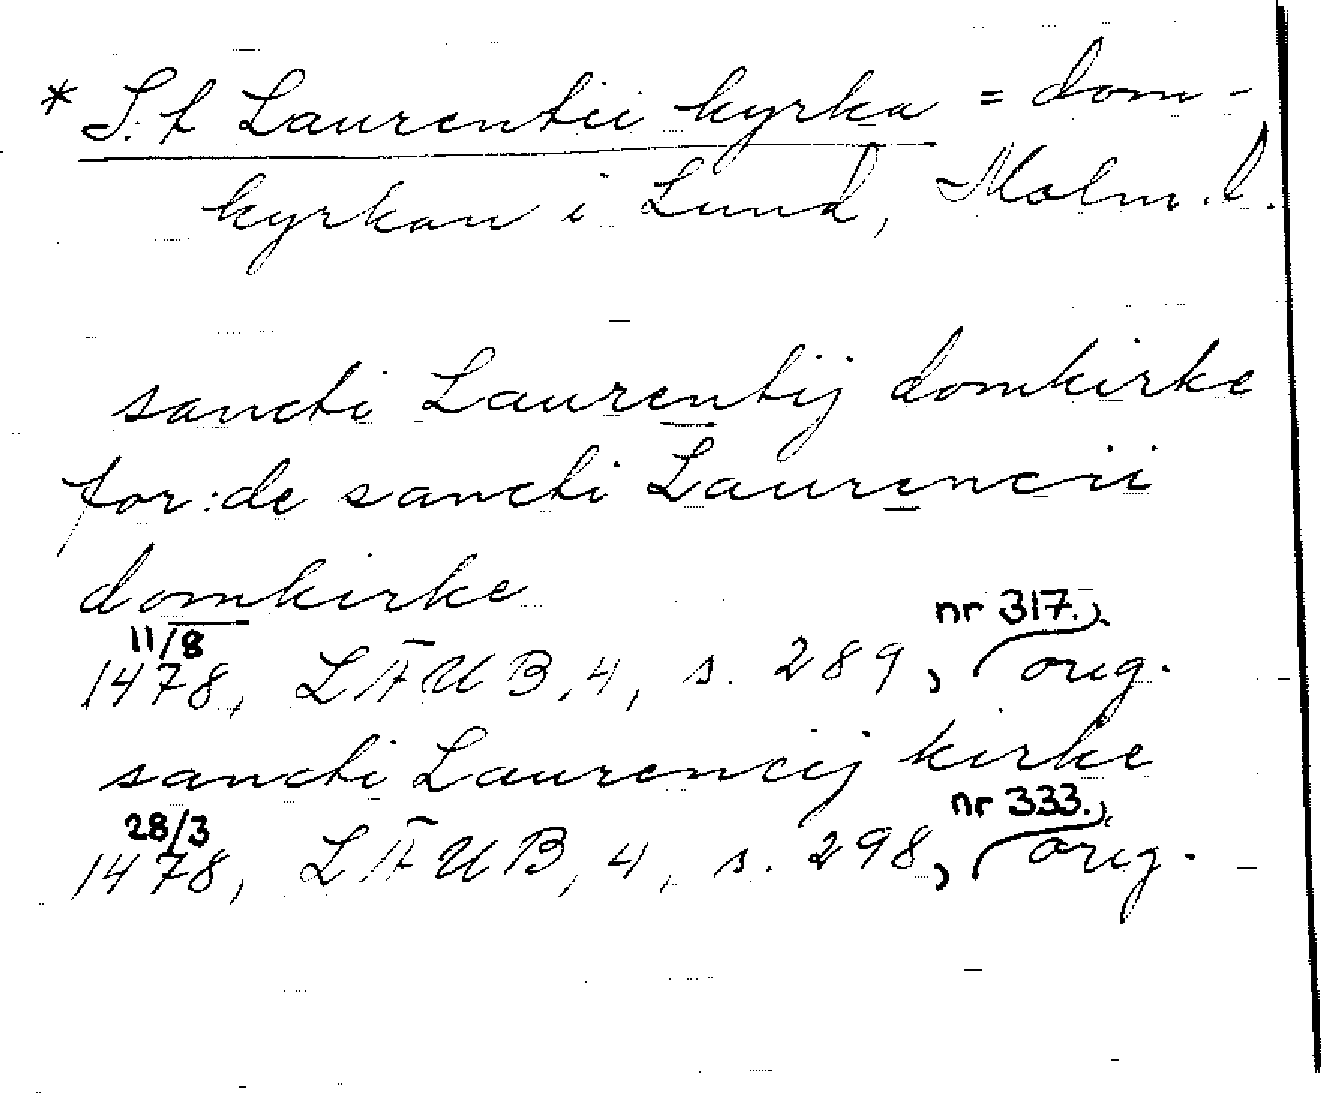 * S:t Laurentii kyrka = dom-
kyrkan i Lund, Malm. l.
sancti Laurentij domkirke
for:de sancti Laurencii
domkirke
11/8
nr 317.
1478, LÄUB, 4, s. 289, orig.
sancti Laurencij kirke
28/3
nr 333.
1478, LÄUB, 4, s. 298, orig.